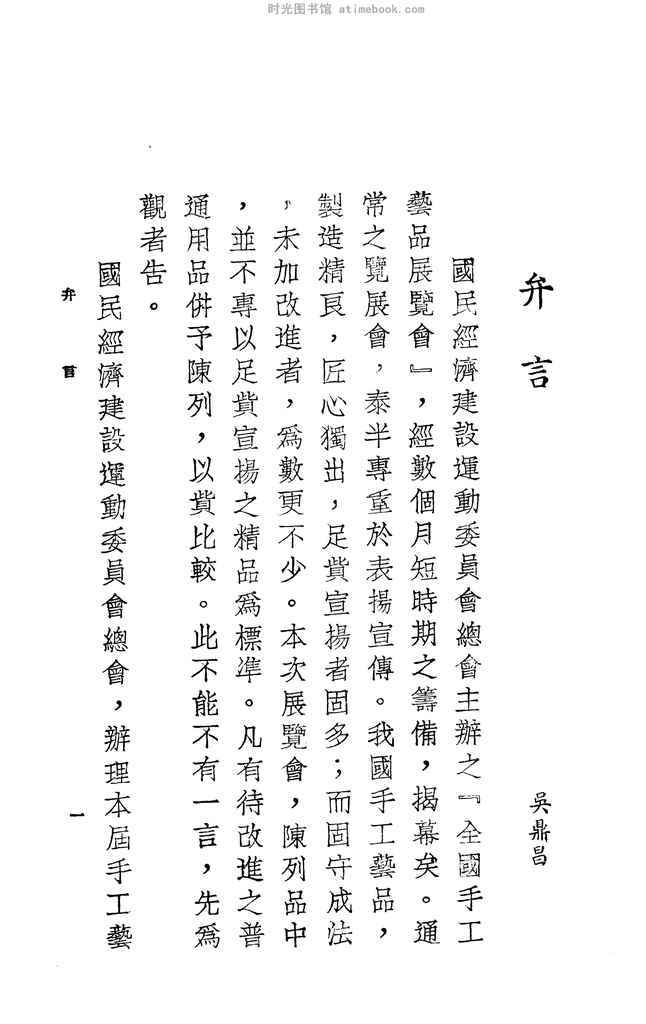 时光图书馆 atimebook.com
弁言
吳鼎昌
國民經濟建設運動委員會總會主辦之『全國手工
藝品展覽會』，經數個月短時期之籌備，揭幕矣。通
常之覽展會，泰半專重於表揚宣傳。我國手工藝品，
製造精良，匠心獨出，足貲宣揚者固多；而固守成法
，未加改進者，爲數更不少。本次展覽會，陳列品中
，並不專以足貲宣揚之精品爲標準。凡有待改進之普
通用品併予陳列，以貲比較。此不能不有一言，先爲
觀者告。
國民經濟建設運動委員會總會，辦理本屆手工藝
弁言
一